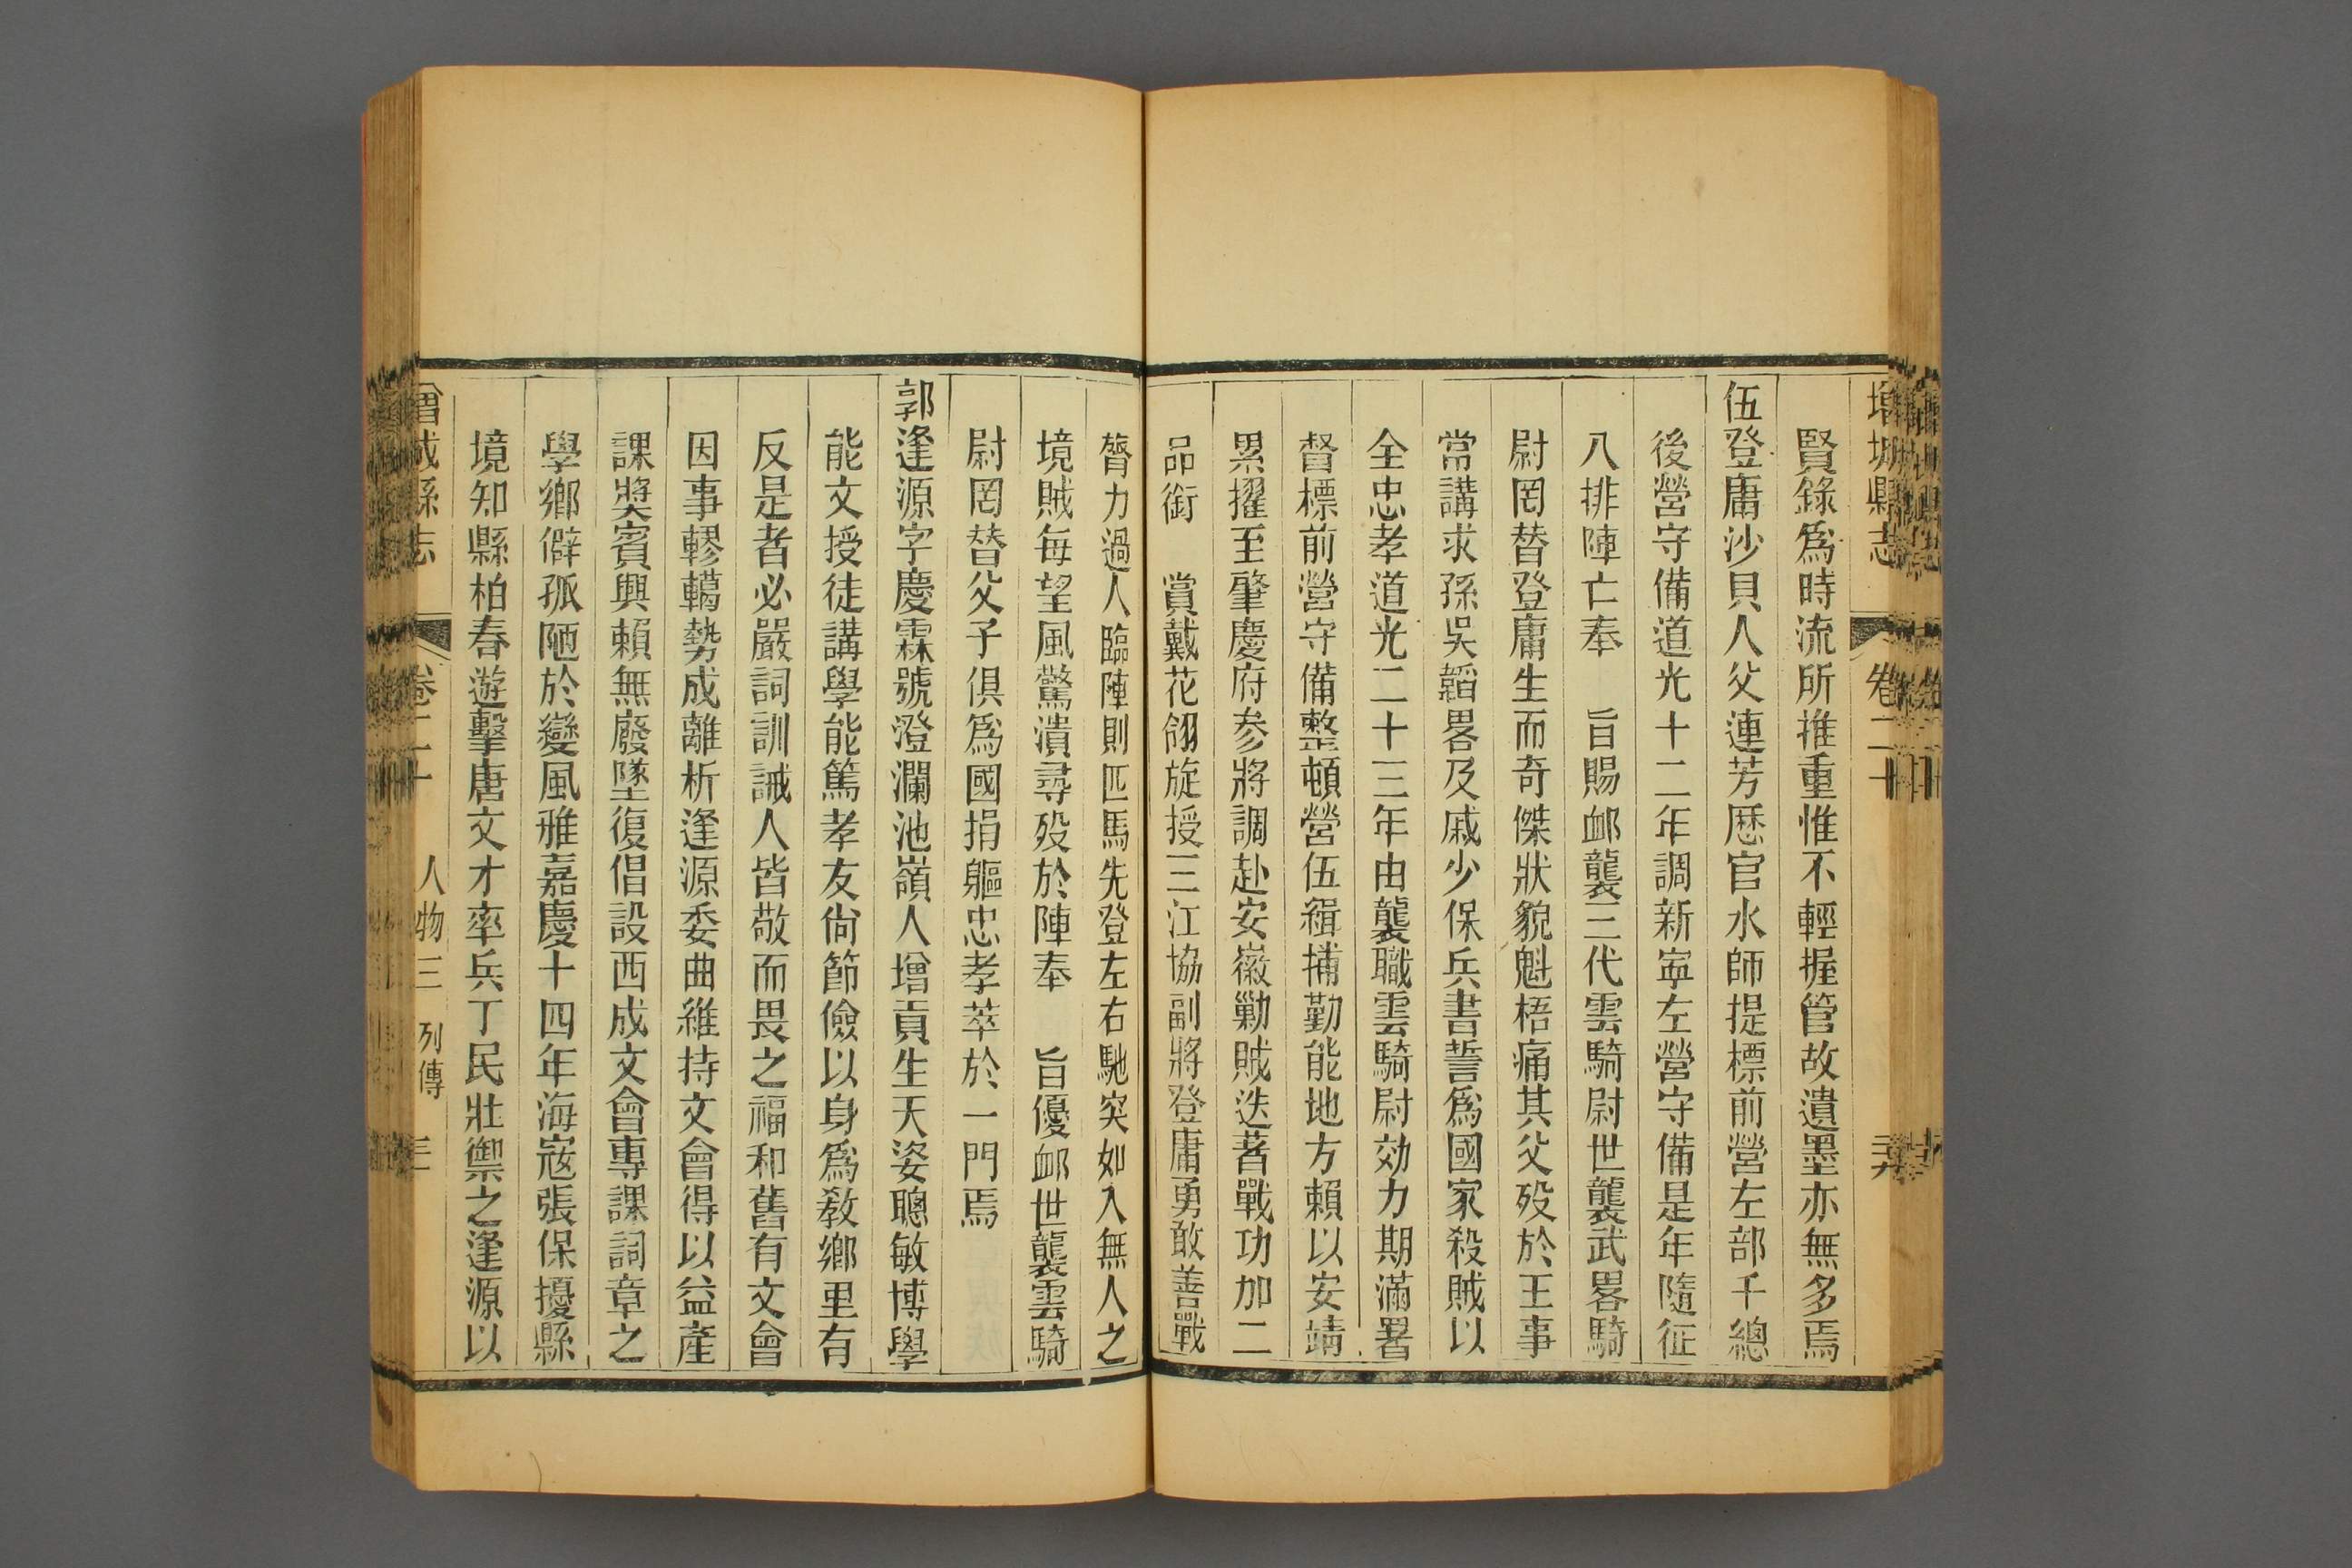 增城縣志 卷二十
賢錄爲時流所推重惟不輕握管故遺墨亦無多焉
伍登庸沙貝人父連芳歷官水師提標前營左部千總
後營守備道光十二年調新寧左營守備是年隨征
八排陣亡奉 旨賜衈襲三代雲騎尉世襲武畧騎
尉罔替登庸生而奇傑狀貌魁梧痛其父歿於王事
常講求孫吳韜畧及戚少保兵書誓爲國家殺賊以
全忠孝道光二十三年由襲職雲騎尉効力期滿署
督標前營守備整頓營伍緝捕勤能地方賴以安靖
累擢至肇慶府參將調赴安徽勦賊迭著戰功加二
品銜 賞戴花翎旋授三江協副將登庸勇敢善戰
膂力過人臨陣則匹馬先登左右馳突如入無人之
境賊每望風驚潰尋歿於陣奉 旨優衈世襲雲騎
尉罔替父子俱爲國捐軀忠孝萃於一門焉
郭逢源字慶霖號澄瀾池嶺人增貢生天姿聰敏博學
能文授徒講學能篤孝友尙節儉以身爲敎鄉里有
反是者必嚴詞訓誡人皆敬而畏之福和舊有文會
因事轇轕勢成離析逢源委曲維持文會得以益產
課奬賓興賴無廢墜復倡設西成文會專課詞章之
學鄉僻孤陋於變風雅嘉慶十四年海寇張保擾縣
境知縣柏春遊擊唐文才率兵丁民壯禦之逢源以
增城縣志 卷二十 人物三 列傳